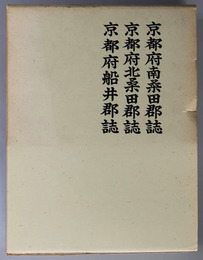 京都府南桑田郡誌
京都府北桑田郡誌
京都府船井郡誌